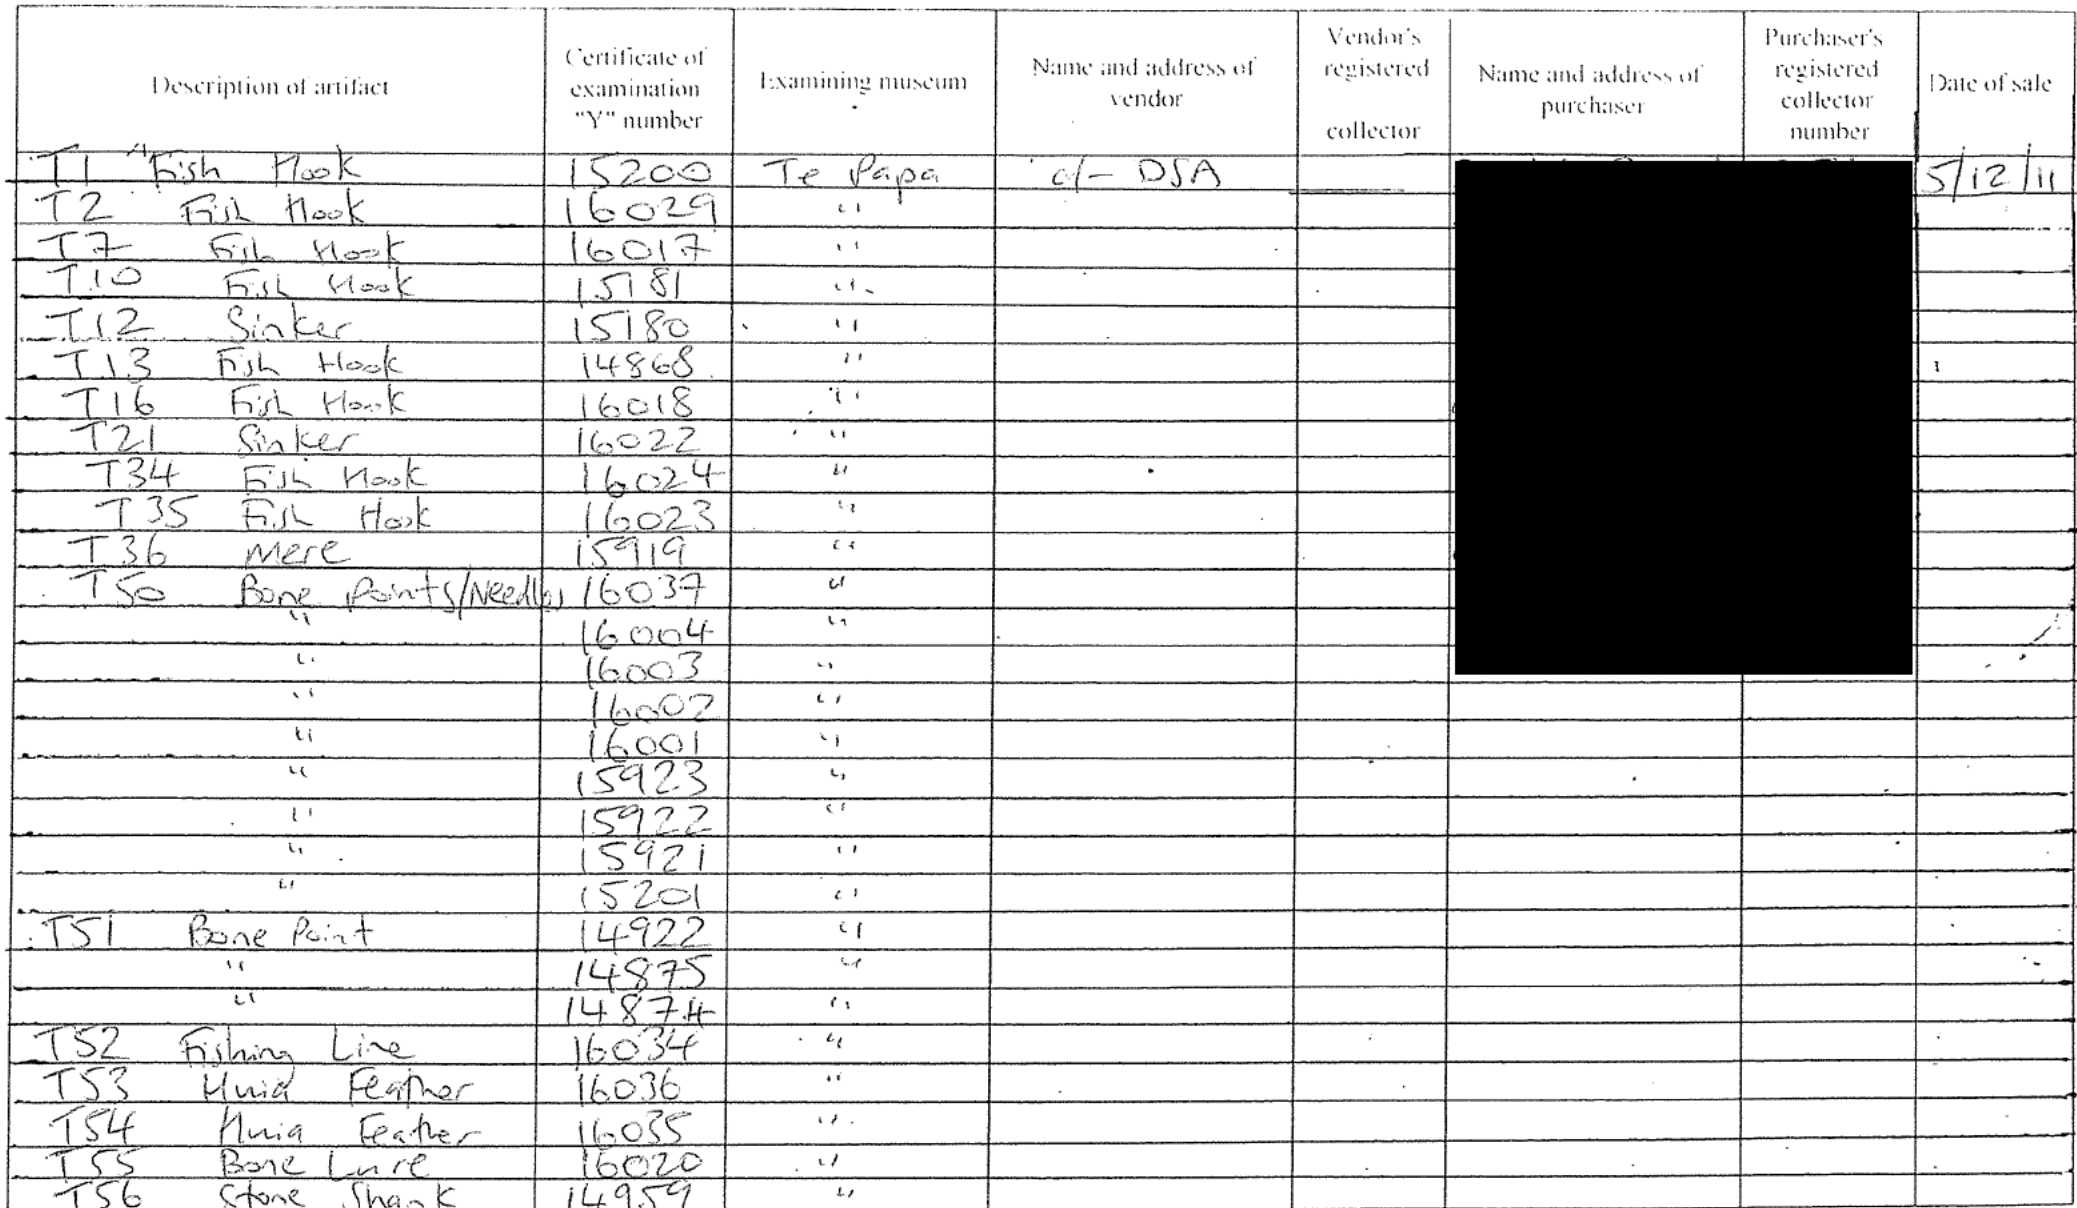 Description of artifact Certificate of examination "Y" number Examining museum Name and address of vendor Vendor's registered collector Name and address of purchaser Purchaser's registered collector number Date of sale
T1 Fish Hook 15200 Te Papa c/- DSA 5/12/11
T2 Fish Hook 16029 "
T7 Fish Hook 16017 "
T10 Fish Hook 15181 "
T12 Sinker 15180 "
T13 Fish Hook 14868 "
T16 Fish Hook 16018 "
T21 Sinker 16022 "
T34 Fish Hook 16024 "
T35 Fish Hook 16023 "
T36 Mere 15919 "
T50 Bone Points/Needles 16037 "
" 16004 "
" 16003 "
" 16002 "
" 16001 "
" 15923 "
" 15922 "
" 15921 "
" 15201 "
T51 Bone Point 14922 "
" 14875 "
" 14874 "
T52 Fishing Line 16034 "
T53 Huia Feather 16036 "
T54 Huia Feather 16035 "
T55 Bone Lure 16020 "
T56 Stone Shank 14959 "